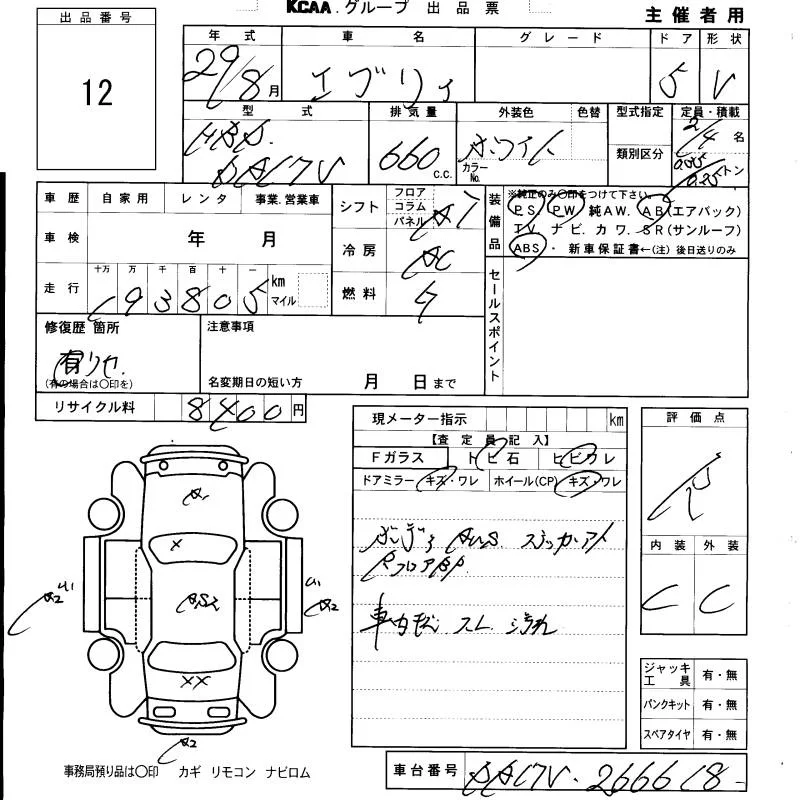 KCAA.グループ 出品票
主催者用
出品番号
12
年式 車名 グレード ドア 形状
29/8月 エブリィ 5 V
型式 排気量 外装色 色替 型式指定 定員・積載
HBD
DA17V 660 c.c. ホワイト カラーNo. 類別区分 2/4名
トン
車歴 自家用 レンタ 事業.営業車
車検 年 月
走行 十万 万 千 百 十 一
193805 km マイル
シフト フロア コラム パネル
冷房 AC
燃料
装備品
※純正のみ○印をつけて下さい。
PS. PW 純AW. AB(エアバック)
TV. ナビ. カワ. SR(サンルーフ)
ABS・ 新車保証書←(注)後日送りのみ
セールスポイント
修復歴 箇所
有
(有の場合は○印を)
注意事項
名変期日の短い方 月 日まで
リサイクル料 8400円
現メーター指示 km
【査定員記入】
Fガラス トビ石 ヒビワレ
ドアミラー キズ・ワレ ホイール(CP) キズ・ワレ
車内 スレ 汚れ
評価点
R
内装 外装
C C
A1
X
U1
A2
U1
A2
XX
A2
ジャッキ工具 有・無
パンクキット 有・無
スペアタイヤ 有・無
事務局預り品は○印 カギ リモコン ナビロム
車台番号 DA17V-266618-